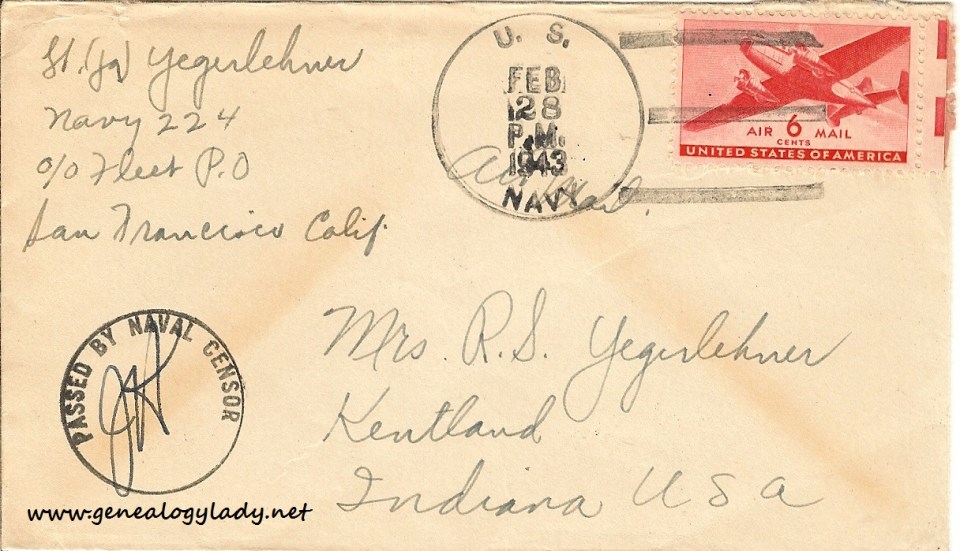 Lt. (jg) Yegerlehner
Navy 224
c/o Fleet P.O
San Francisco Calif.
U. S.
FEB
28
P.M.
1943
NAVY
Air Mail.
AIR 6 MAIL
CENTS
UNITED STATES OF AMERICA
PASSED BY NAVAL CENSOR
Mrs. R. S. Yegerlehner
Kentland
Indiana USA
www.genealogylady.net